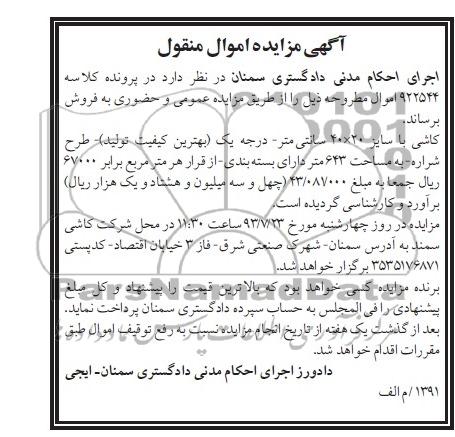 آگهی مزایده اموال منقول
اجرای احکام مدنی دادگستری سمنان در نظر دارد در پرونده کلاسه
۹۲۲۵۴۴ اموال مطروحه ذیل را از طریق مزایده عمومی و حضوری به فروش
برساند.
کاشی با سایز ۲۰×۴۰ سانتی متر- درجه یک (بهترین کیفیت تولید)- طرح
شراره- به مساحت ۶۴۳ متر دارای بسته بندی- از قرار هر متر مربع برابر ۶۷۰۰۰
ریال جمعا به مبلغ ۴۳/۰۸۷۰۰۰ (چهل و سه میلیون و هشتاد و یک هزار ریال)
برآورد و کارشناسی گردیده است.
مزایده در روز چهارشنبه مورخ ۹۳/۷/۲۳ ساعت ۱۱:۳۰ در محل شرکت کاشی
سمند به آدرس سمنان- شهرک صنعتی شرق- فاز ۳ خیابان اقتصاد- کدپستی
۳۵۳۵۱۷۶۸۷۱ برگزار خواهد شد.
برنده مزایده کسی خواهد بود که بالاترین قیمت را پیشنهاد و کل مبلغ
پیشنهادی را فی المجلس به حساب سپرده دادگستری سمنان پرداخت نماید.
بعد از گذشت یک هفته از تاریخ انجام مزایده نسبت به رفع توقیف اموال طبق
مقررات اقدام خواهد شد.
دادورز اجرای احکام مدنی دادگستری سمنان- ایجی
۱۳۹۱/م الف
ParsNamadData